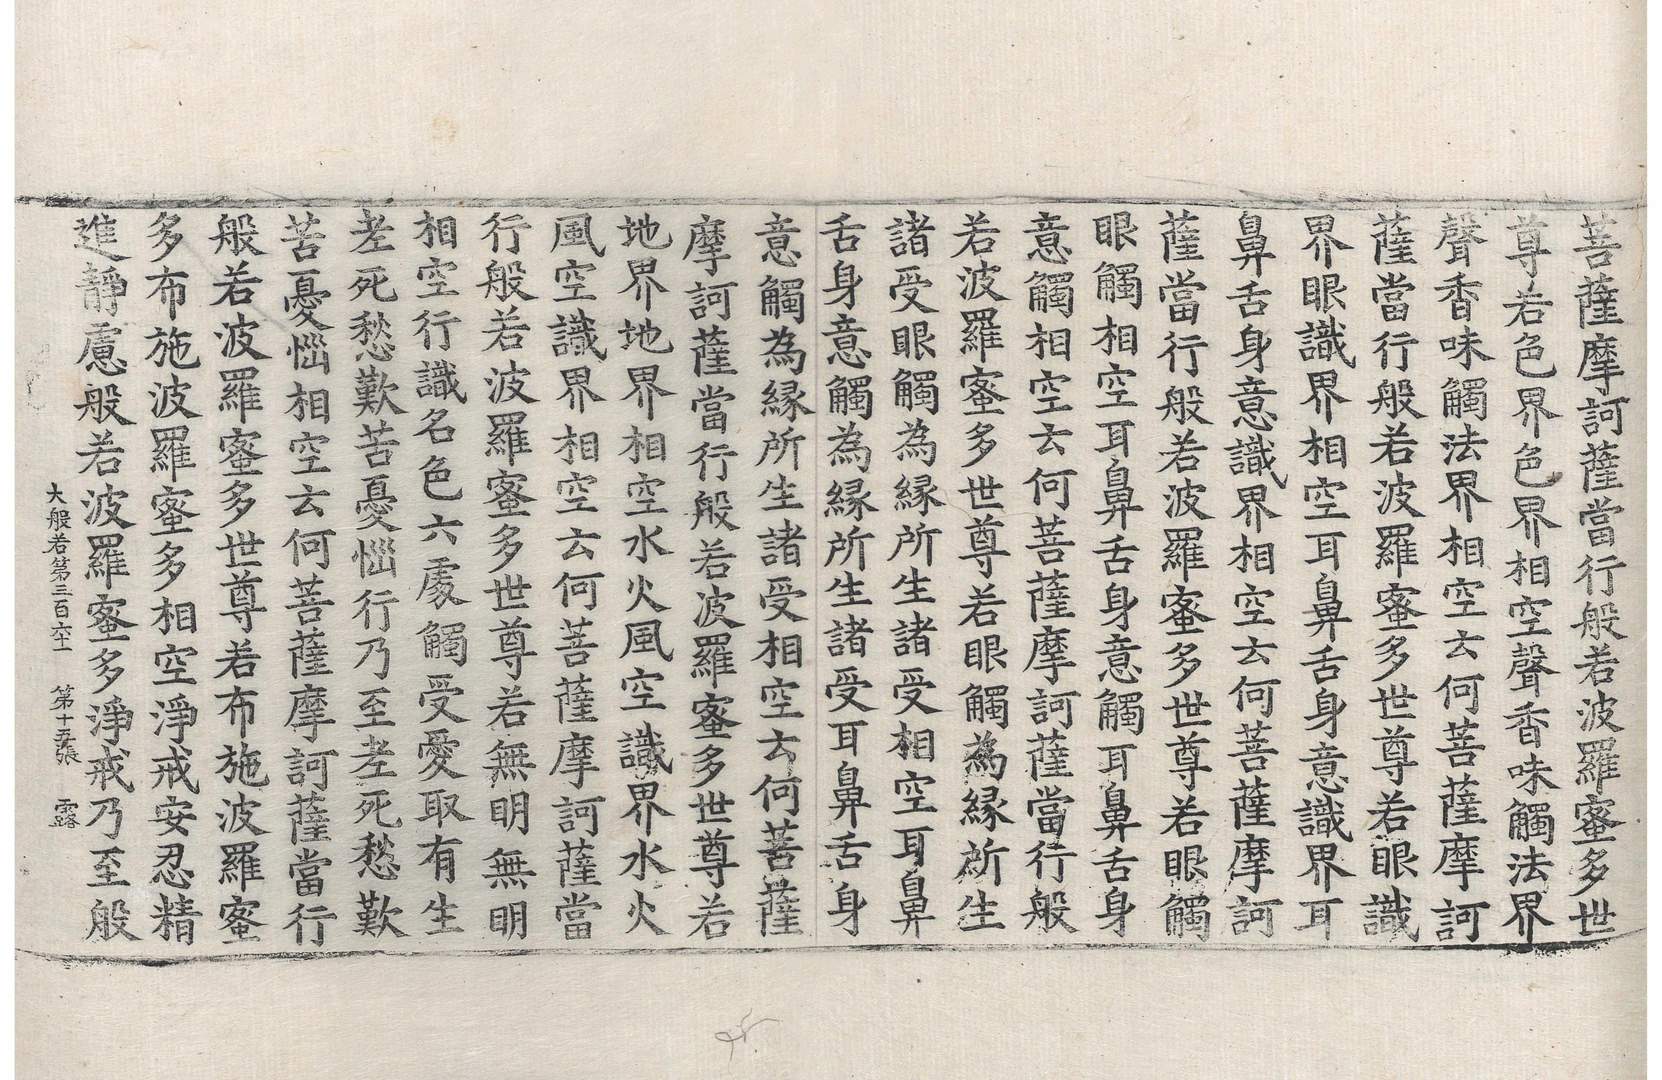 菩薩摩訶薩當行般若波羅蜜多世
尊若色界色界相空聲香味觸法界
聲香味觸法界相空云何菩薩摩訶
薩當行般若波羅蜜多世尊若眼識
界眼識界相空耳鼻舌身意識界耳
鼻舌身意識界相空云何菩薩摩訶
薩當行般若波羅蜜多世尊若眼觸
眼觸相空耳鼻舌身意觸耳鼻舌身
意觸相空云何菩薩摩訶薩當行般
若波羅蜜多世尊若眼觸為緣所生
諸受眼觸為緣所生諸受相空耳鼻
舌身意觸為緣所生諸受耳鼻舌身
意觸為緣所生諸受相空云何菩薩
摩訶薩當行般若波羅蜜多世尊若
地界地界相空水火風空識界水火
風空識界相空云何菩薩摩訶薩當
行般若波羅蜜多世尊若無明無明
相空行識名色六處觸受愛取有生
老死愁歎苦憂惱行乃至老死愁歎
苦憂惱相空云何菩薩摩訶薩當行
般若波羅蜜多世尊若布施波羅蜜
多布施波羅蜜多相空淨戒安忍精
進靜慮般若波羅蜜多淨戒乃至般
大般若第三百六十一 第十五張 露